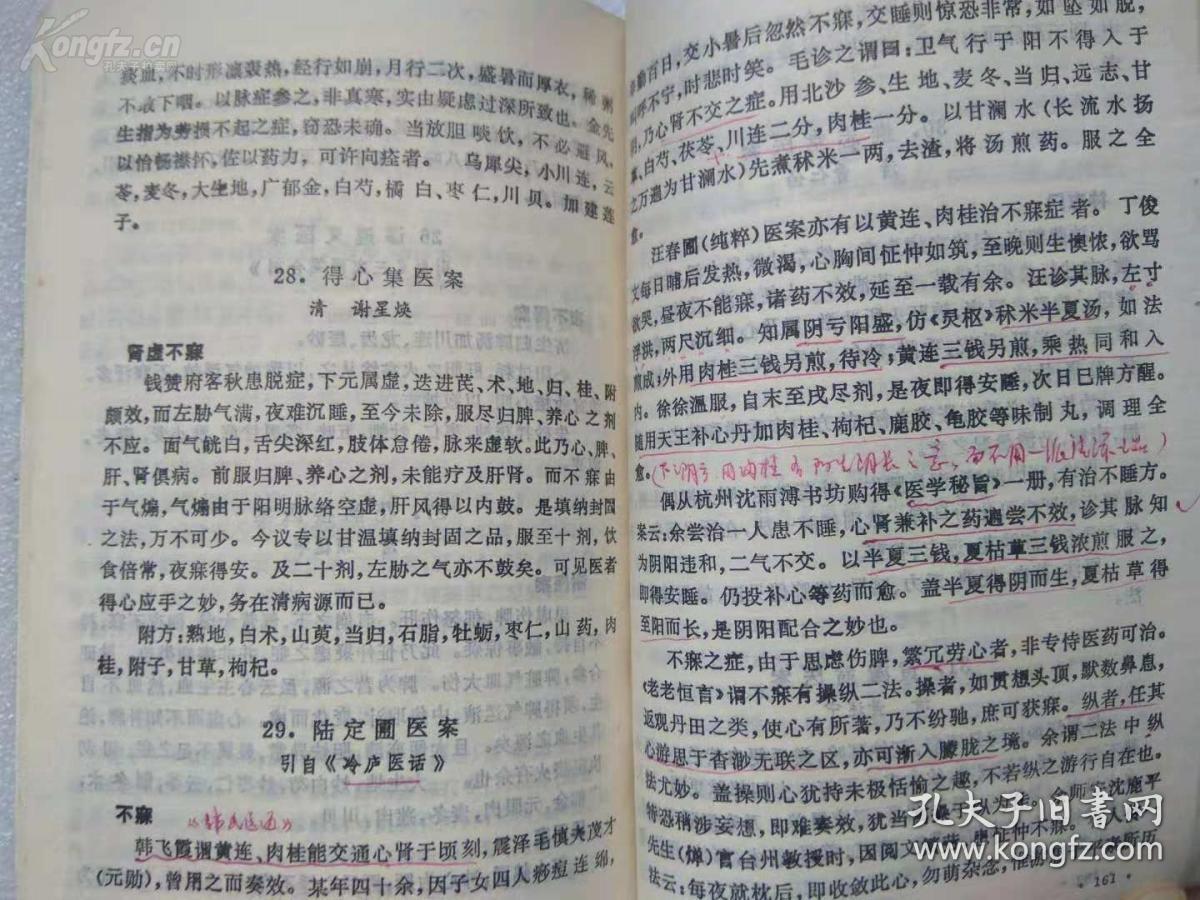 Kongfz.cn
孔夫子旧书网
痰血,不时形凛轰热,经行如崩,月行二次,盛暑而厚衣,稀粥
不敢下咽。以脉症参之,非真寒,实由疑虑过深所致也。金先
生指为劳损不起之症,窃恐未确。当放胆啖饮,不必避风,
以怡畅襟怀,佐以药力,可许向痊者。 乌犀尖,小川连,云
苓,麦冬,大生地,广郁金,白芍,橘白、枣仁,川贝。加建莲
子。
28. 得心集医案
清 谢星焕
肾虚不寐
钱赞府客秋患脱症,下元属虚,迭进芪、术、地、归、桂、附
颇效,而左胁气满,夜难沉睡,至今未除,服尽归脾、养心之剂
不应。面气㿠白,舌尖深红,肢体怠倦,脉来虚软。此乃心、脾、
肝、肾俱病。前服归脾、养心之剂,未能疗及肝肾。而不寐由
于气煽,气煽由于阳明脉络空虚,肝风得以内鼓。是填纳封固
之法,万不可少。今议专以甘温填纳封固之品,服至十剂,饮
食倍常,夜寐得安。及二十剂,左胁之气亦不鼓矣。可见医者
得心应手之妙,务在清病源而已。
附方:熟地,白术,山萸,当归,石脂,牡蛎,枣仁,山药,肉
桂,附子,甘草,枸杞。
29. 陆定圃医案
引自《冷庐医话》
不寐
韩飞霞谓黄连、肉桂能交通心肾于顷刻,震泽毛慎夫茂才
(元勋),曾用之而奏效。某年四十余,因子女四人痧痘连绵,
勤百日,交小暑后忽然不寐,交睡则惊恐非常,如坠如脱,
呼不宁,时悲时笑。毛诊之谓曰:卫气行于阳不得入于
阴,乃心肾不交之症。用北沙参、生地、麦冬、当归、远志、甘
草、白芍、茯苓、川连二分,肉桂一分。以甘澜水(长流水扬
之万遍为甘澜水)先煮秫米一两,去渣,将汤煎药。服之全
愈。
汪春圃(纯粹)医案亦有以黄连、肉桂治不寐症者。丁俊
文每日晡后发热,微渴,心胸间怔忡如筑,至晚则生懊侬,欲骂
欲哭,昼夜不能寐,诸药不效,延至一载有余。汪诊其脉,左寸
浮洪,两尺沉细。知属阴亏阳盛,仿《灵枢》秫米半夏汤,如法
煎成;外用肉桂三钱另煎,待冷;黄连三钱另煎,乘热同和入
内。徐徐温服,自未至戌尽剂,是夜即得安睡,次日巳牌方醒。
随用天王补心丹加肉桂、枸杞、鹿胶、龟胶等味制丸,调理全
愈。
偶从杭州沈雨溥书坊购得《医学秘旨》一册,有治不睡方。
案云:余尝治一人患不睡,心肾兼补之药遍尝不效,诊其脉知
为阴阳违和,二气不交。以半夏三钱,夏枯草三钱浓煎服之,
即得安睡。仍投补心等药而愈。盖半夏得阴而生,夏枯草得
至阳而长,是阴阳配合之妙也。
不寐之症,由于思虑伤脾,繁冗劳心者,非专恃医药可治。
《老老恒言》谓不寐有操纵二法。操者,如贯想头顶,默数鼻息,
返观丹田之类,使心有所著,乃不纷驰,庶可获寐。纵者,任其
心游思于杳渺无联之区,亦可渐入朦胧之境。余谓二法中纵
法尤妙。盖操则心犹持未极恬愉之趣,不若纵之游行自在也。
特恐稍涉妄想,即难奏效,犹当 认为法。余师 沈鹿平
先生(焯)官台州教授时,因阅文
法云:每夜就枕后,即收敛此心,勿萌杂念,
· 161 ·
孔夫子旧书网
book.kongfz.com